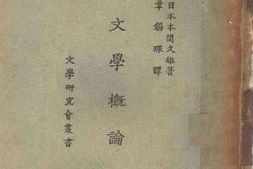 日本本間久雄著
章錫琛譯
文學概論
文學研究會叢書